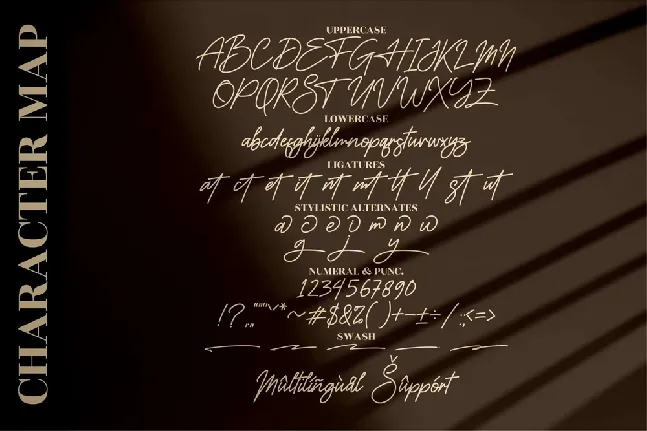 CHARACTER MAP
UPPERCASE
ABCDEFGHIJKLMN
OPQRSTUVWXYZ
LOWERCASE
abcdefghijklmnopqrstuvwxyz
LIGATURES
at ct et it nt mt tt ll st ut
STYLISTIC ALTERNATES
a c e o m n u
g j y
NUMERAL & PUNC.
1234567890
!?.,,""''*~#$&%()+-±÷/:;<=>
SWASH
Mùltilíngùàl Šùppórt